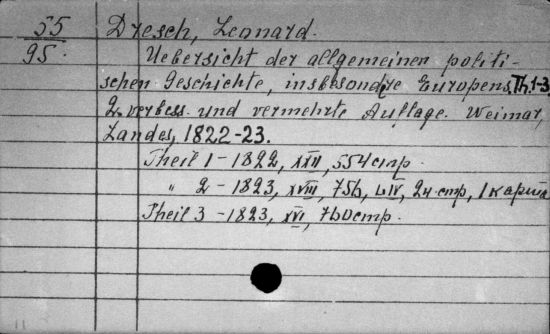 55 Dresch, Leonard.
95. Uebersicht der allgemeinen politi-
schen Geschichte, insbesondre Europens. Th. 1-3
2. verbess. und vermehrte Auflage. Weimar,
Landes, 1822-23.
Theil 1 - 1822, XXII, 554 стр.
" 2 - 1823, XVIII, 756, LIV, 24 стр, 1 карта
Theil 3 - 1823, XVI, 760 стр.